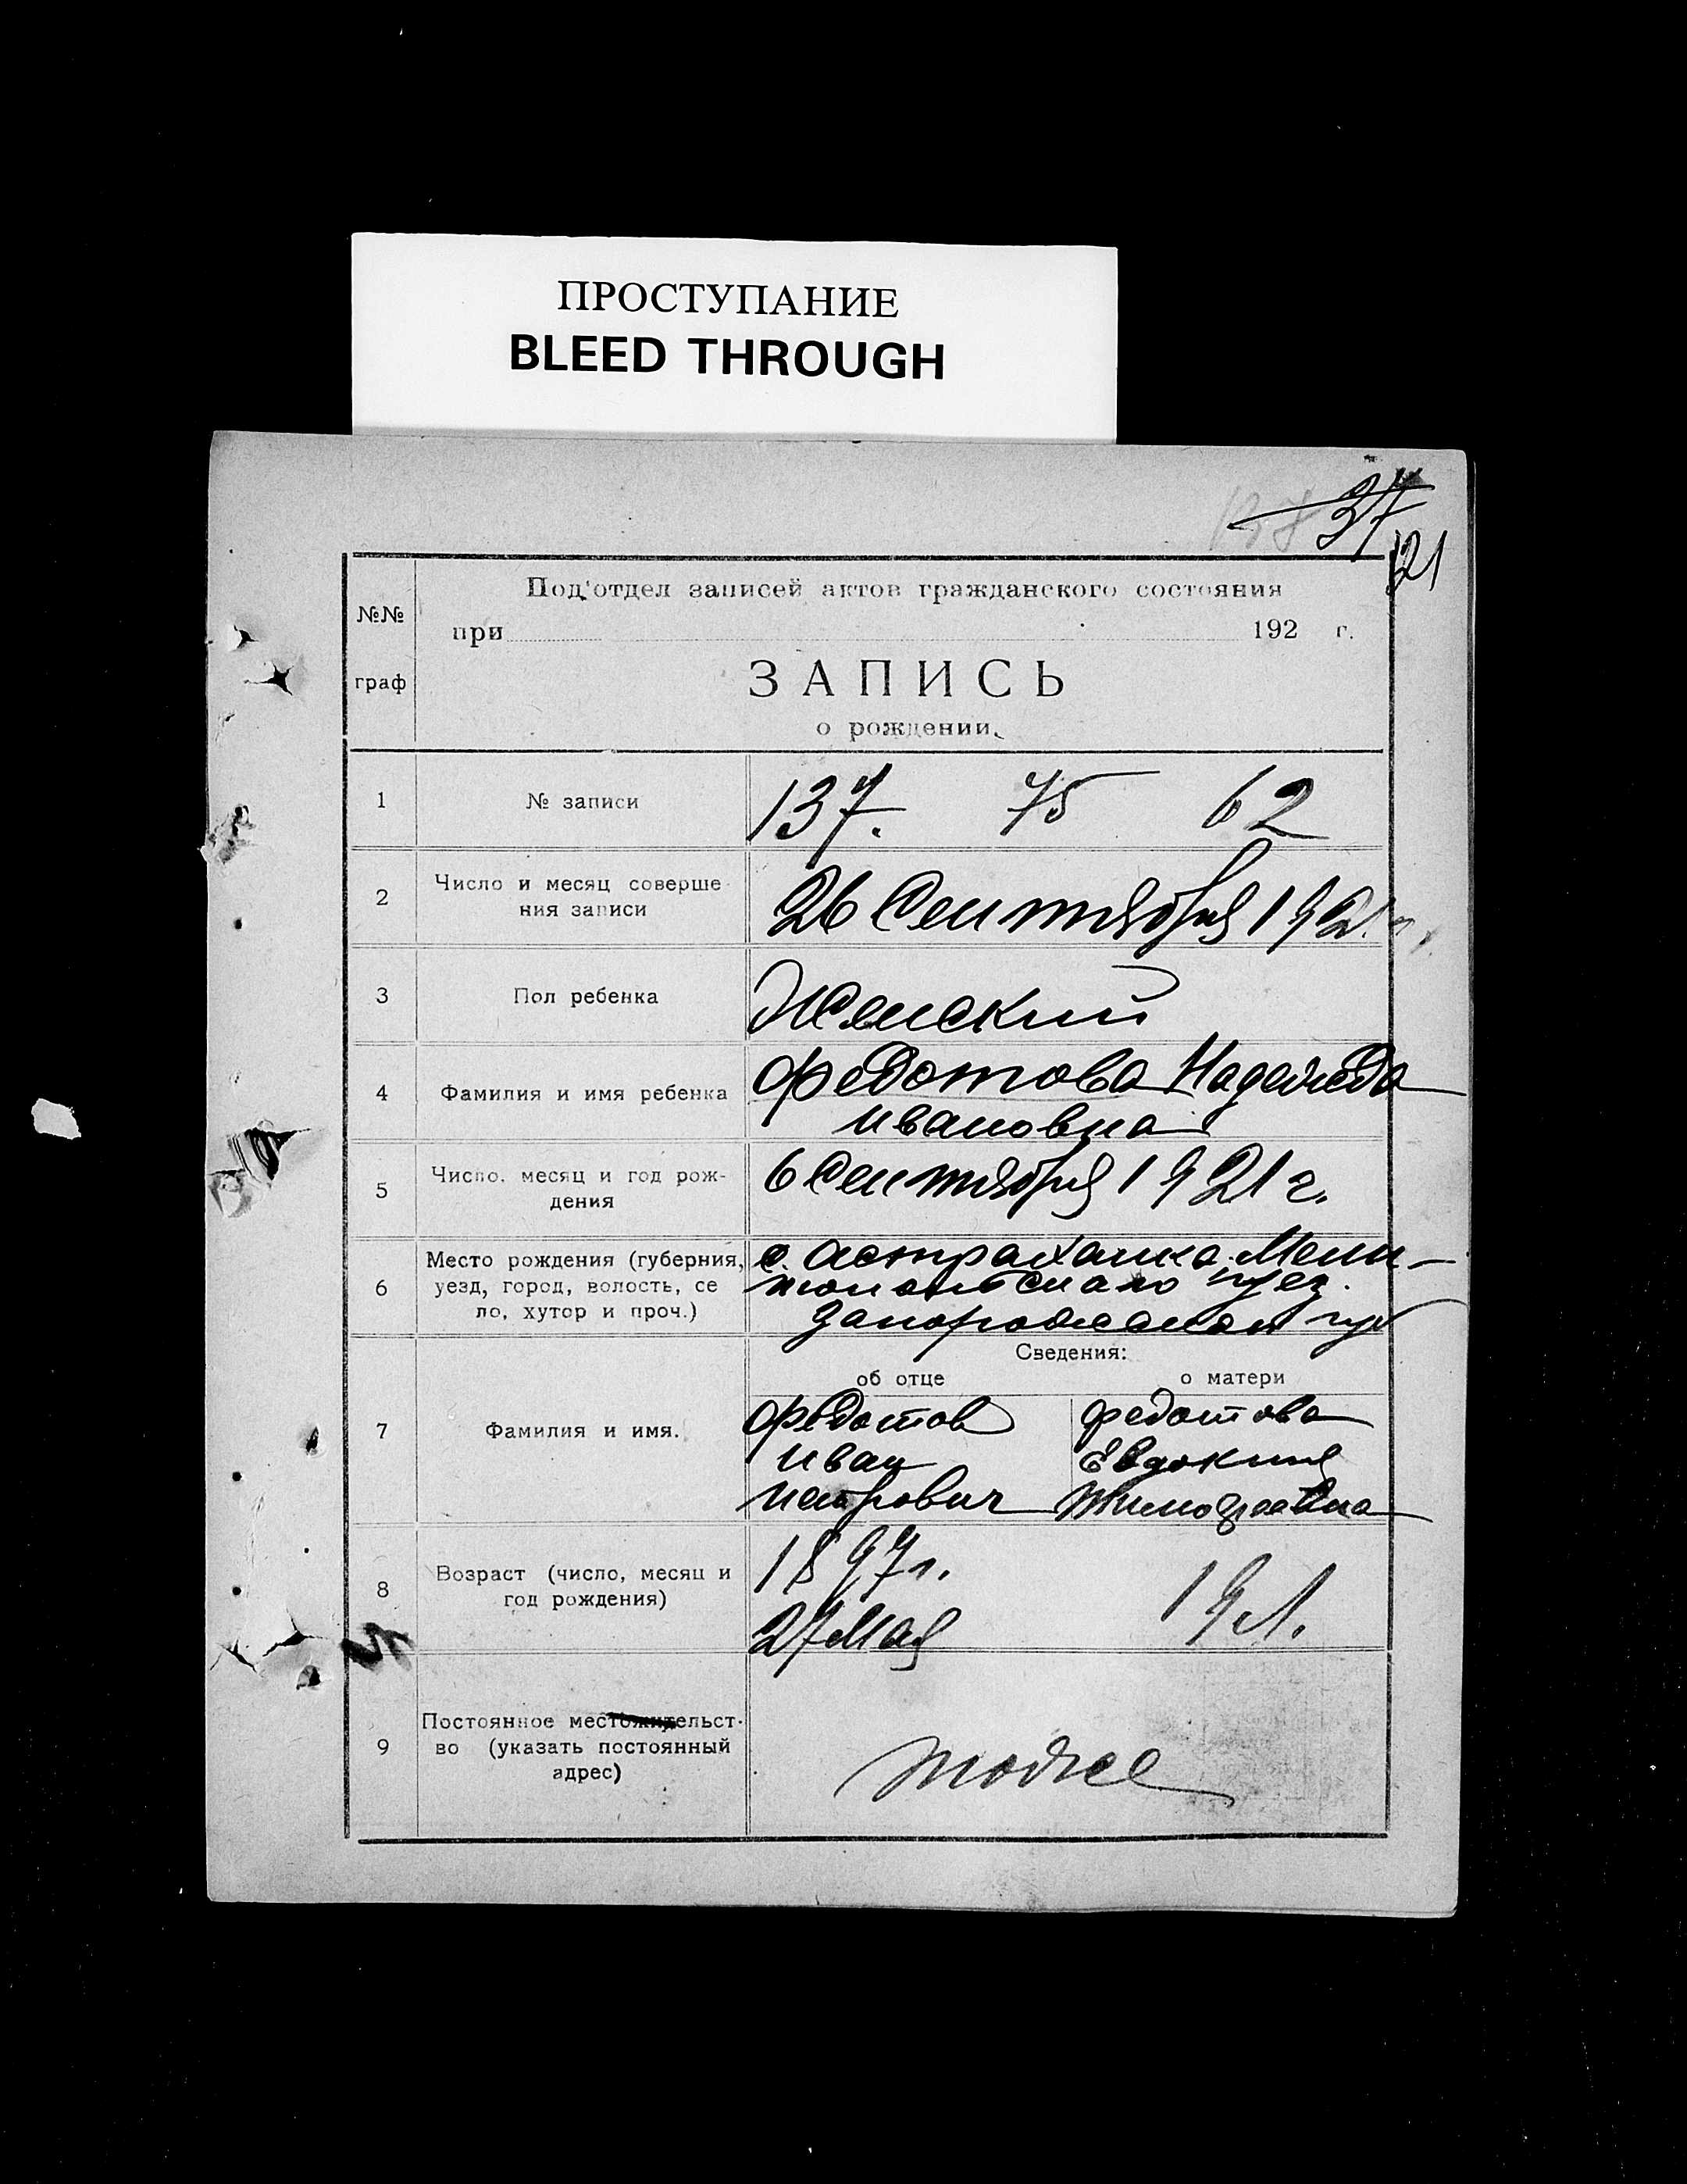 ПРОСТУПАНИЕ
BLEED THROUGH
37
121
№№
граф
Под'отдел записей актов гражданского состояния
при 192 г.
ЗАПИСЬ
о рождении.
1 № записи 137. 75 62
2 Число и месяц соверше
ния записи 26 Сентября 1921 г.
3 Пол ребенка Женский
4 Фамилия и имя ребенка Федотова Надежда
Ивановна
5 Число. месяц и год рож-
дения 6 Сентября 1921 г.
6 Место рождения (губерния,
уезд, город, волость, се
ло, хутор и проч.)
с. Астраханка Мели-
топольскаго уез.
Запорожской губ
Сведения:
об отце о матери
7 Фамилия и имя.
Федотов Федотова
Иван Евдокия
Петрович Тимофеевна
8 Возраст (число, месяц и
год рождения)
1897 г. 19 л.
27 Мая
9 Постоянное местожительст-
во (указать постоянный
адрес)
тоже